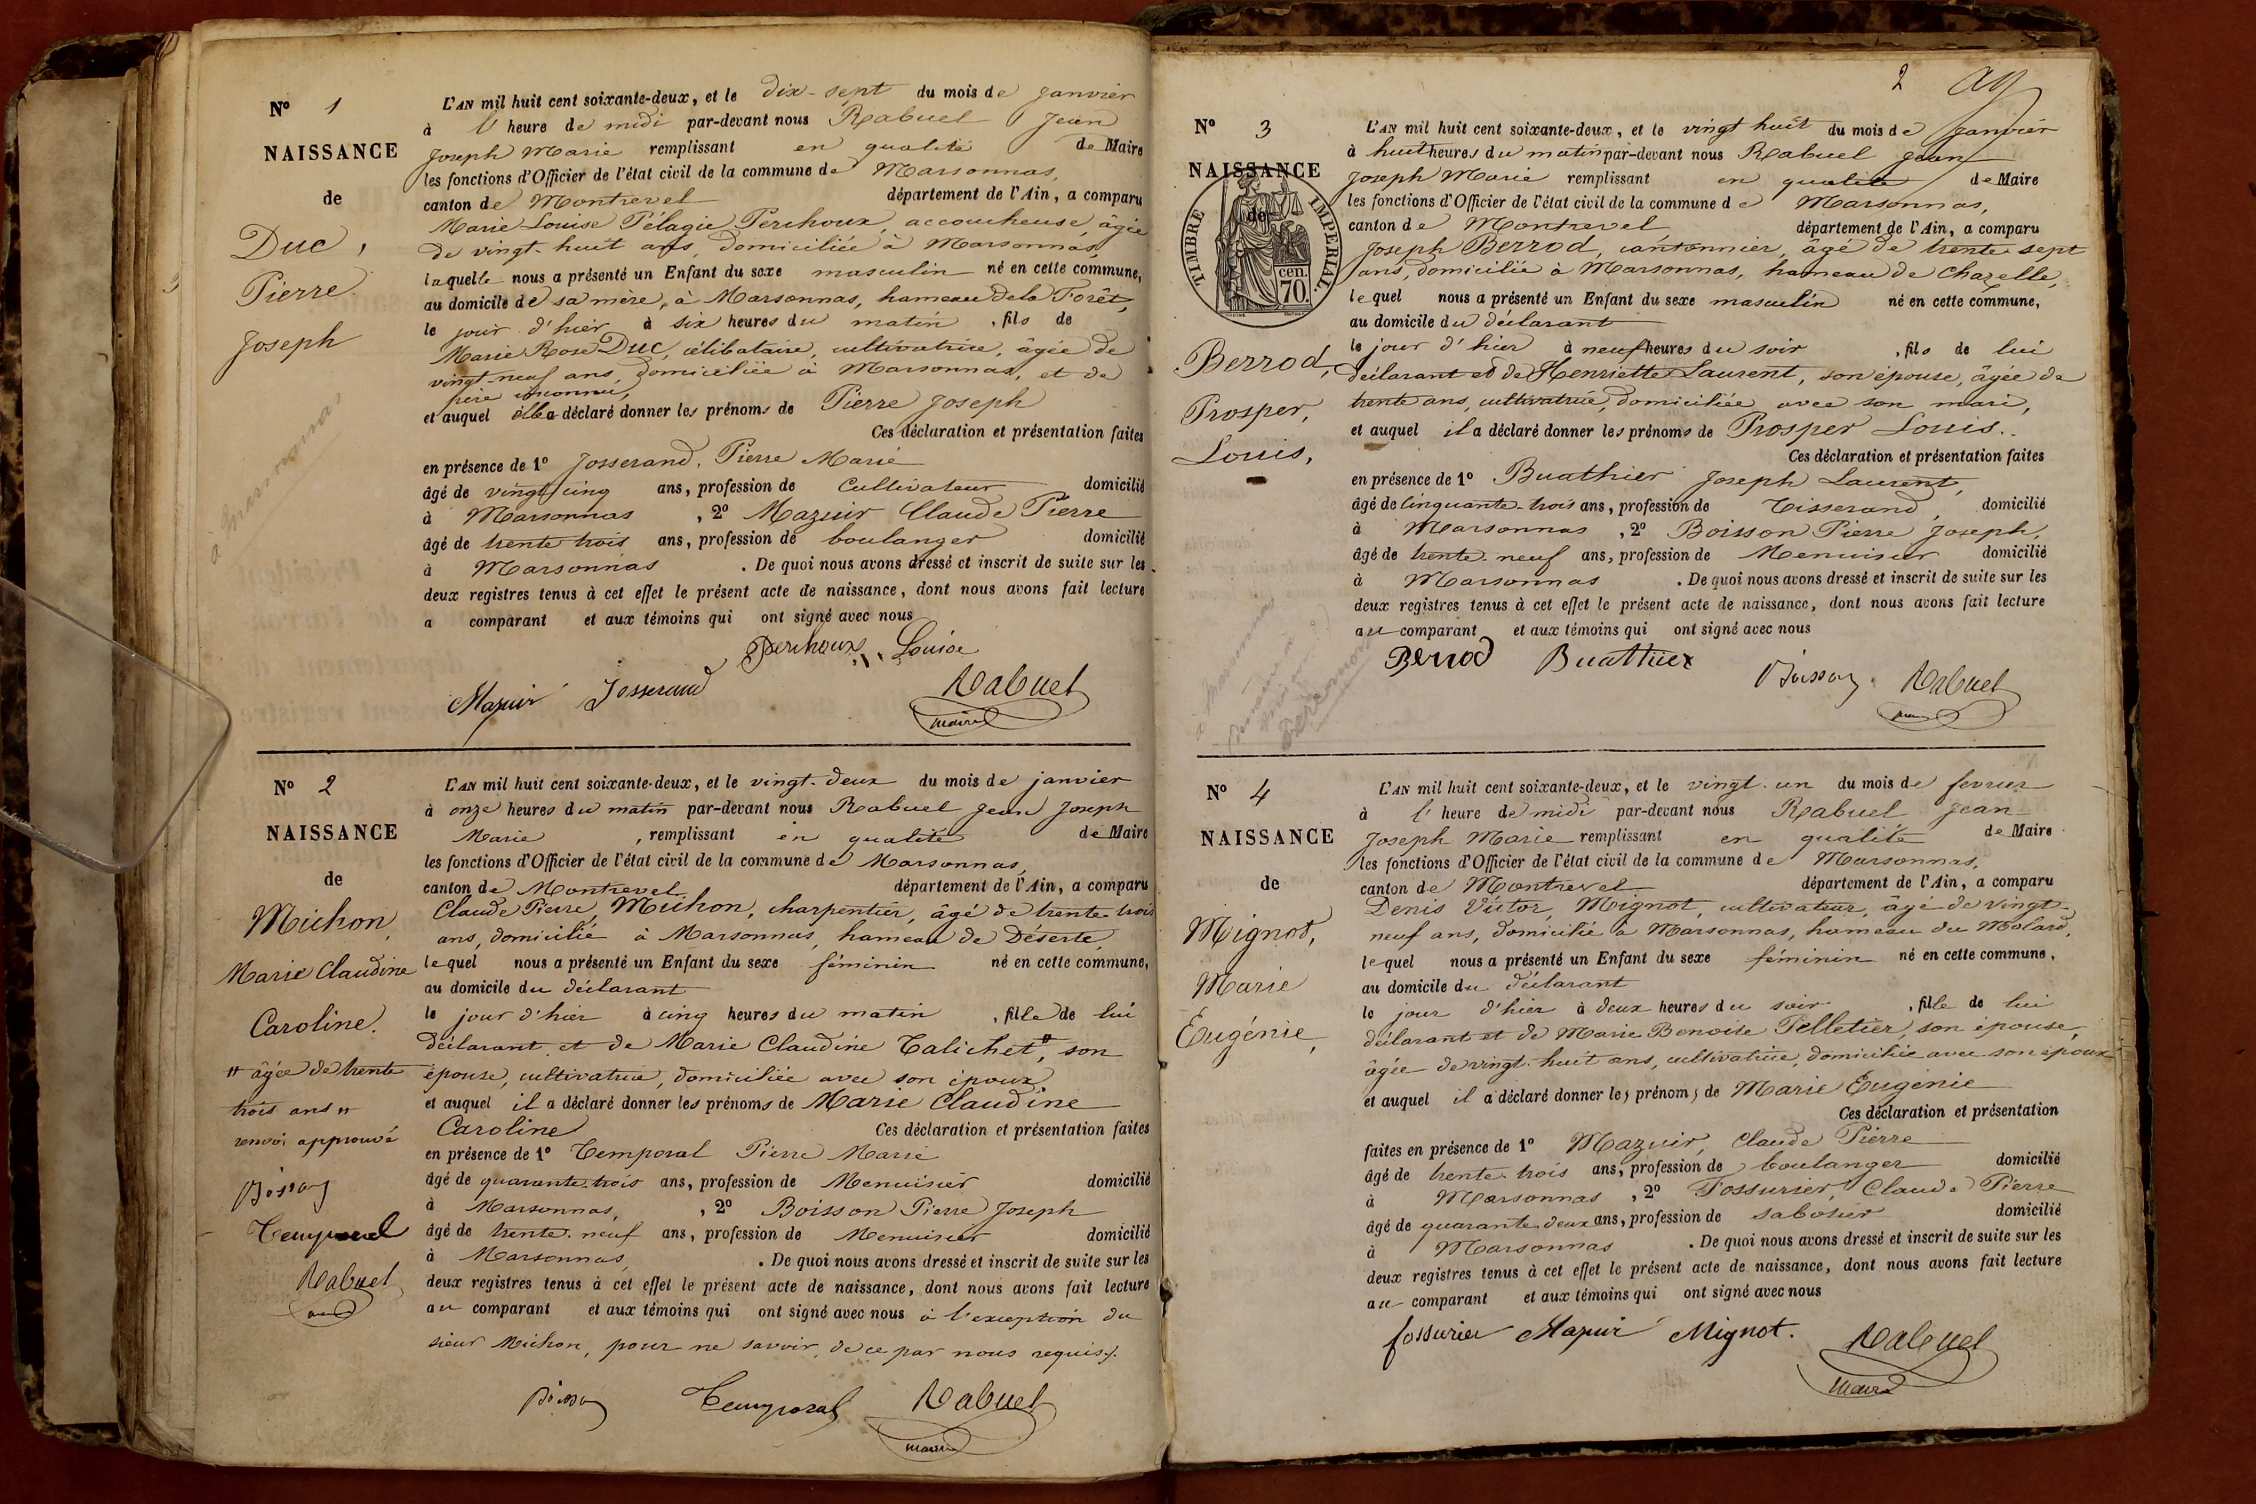 Nº 1
NAISSANCE
de
Duc,
Pierre
Joseph
L'AN mil huit cent soixante-deux, et le dix-sept du mois de janvier
à l'heure de midi par-devant nous Rabuel Jean
Joseph Marie remplissant en qualité de Maire
les fonctions d'Officier de l'état civil de la commune de Marsonnas,
canton de Montrevel département de l'Ain, a comparu
Marie Louise Pélagie Perchoux, accoucheuse, âgée
de vingt-huit ans, domiciliée à Marsonnas,
laquelle nous a présenté un Enfant du sexe masculin né en cette commune,
au domicile de sa mère, à Marsonnas, hameau de la Forêt,
le jour d'hier à six heures du matin, fils de
Marie Rose Duc, célibataire, cultivatrice, âgée de
vingt neuf ans, domiciliée à Marsonnas, et de
père inconnu,
et auquel elle a déclaré donner les prénoms de Pierre Joseph
Ces déclaration et présentation faites
en présence de 1º Josserand, Pierre Marie
âgé de vingt cinq ans, profession de Cultivateur domicilié
à Marsonnas, 2º Mazuir Claude Pierre
âgé de trente trois ans, profession de boulanger domicilié
à Marsonnas. De quoi nous avons dressé et inscrit de suite sur les
deux registres tenus à cet effet le présent acte de naissance, dont nous avons fait lecture
a comparant et aux témoins qui ont signé avec nous
Perchoux Louise
Mazuir Josserand Rabuel
maire
Nº 2
NAISSANCE
de
Michon,
Marie Claudine
Caroline.
# âgée de trente
trois ans #
renvoi approuvé
Boisson
Temporal
Rabuel
L'AN mil huit cent soixante-deux, et le vingt-deux du mois de janvier
à onze heures du matin par-devant nous Rabuel Jean Joseph
Marie, remplissant en qualité de Maire
les fonctions d'Officier de l'état civil de la commune de Marsonnas,
canton de Montrevel département de l'Ain, a comparu
Claude Pierre, Michon, charpentier, âgé de trente-trois
ans, domicilié à Marsonnas, hameau de Déserte,
lequel nous a présenté un Enfant du sexe féminin né en cette commune,
au domicile du déclarant
le jour d'hier à cinq heures du matin, fille de lui
déclarant et de Marie Claudine Talichet #, son
épouse, cultivatrice, domiciliée avec son époux,
et auquel il a déclaré donner les prénoms de Marie Claudine
Caroline Ces déclaration et présentation faites
en présence de 1º Temporal Pierre Marie
âgé de quarante-trois ans, profession de Menuisier domicilié
à Marsonnas, , 2º Boisson Pierre Joseph
âgé de trente-neuf ans, profession de Menuisier domicilié
à Marsonnas, . De quoi nous avons dressé et inscrit de suite sur les
deux registres tenus à cet effet le présent acte de naissance, dont nous avons fait lecture
au comparant et aux témoins qui ont signé avec nous à l'exception du
sieur Michon, pour ne savoir, de ce par nous requis.
Boisson Temporal Rabuel
maire
2
Nº 3
NAISSANCE
de
TIMBRE IMPERIAL.
cen.
70.
Berrod,
Prosper,
Louis,
L'AN mil huit cent soixante-deux, et le vingt huit du mois de janvier
à huit heures du matin par-devant nous Rabuel Jean
Joseph Marie remplissant en qualité de Maire
les fonctions d'Officier de l'état civil de la commune de Marsonnas,
canton de Montrevel département de l'Ain, a comparu
Joseph Berrod, cantonnier, âgé de trente-sept
ans, domicilié à Marsonnas, hameau de Chazelle,
lequel nous a présenté un Enfant du sexe masculin né en cette commune,
au domicile du déclarant
le jour d'hier à neuf heures du soir, fils de lui
déclarant et de Henriette Laurent, son épouse, âgée de
trente ans, cultivatrice, domiciliée avec son mari,
et auquel il a déclaré donner les prénoms de Prosper Louis.
Ces déclaration et présentation faites
en présence de 1º Buathier Joseph Laurent,
âgé de cinquante-trois ans, profession de Tisserand, domicilié
à Marsonnas, 2º Boisson Pierre Joseph,
âgé de trente-neuf ans, profession de Menuisier domicilié
à Marsonnas. De quoi nous avons dressé et inscrit de suite sur les
deux registres tenus à cet effet le présent acte de naissance, dont nous avons fait lecture
au comparant et aux témoins qui ont signé avec nous
Berrod Buathier Boisson Rabuel
Nº 4
NAISSANCE
de
Mignot,
Marie
Eugénie,
L'AN mil huit cent soixante-deux, et le vingt-un du mois de fevrier
à l'heure de midi par-devant nous Rabuel Jean
Joseph Marie remplissant en qualité de Maire
les fonctions d'Officier de l'état civil de la commune de Marsonnas,
canton de Montrevel département de l'Ain, a comparu
Denis Victor, Mignot, cultivateur, âgé de vingt-
neuf ans, domicilié à Marsonnas, hameau du Molard,
lequel nous a présenté un Enfant du sexe féminin né en cette commune,
au domicile du déclarant
le jour d'hier à deux heures du soir, fille de lui
déclarant et de Marie Benoite Pelletier, son épouse,
âgée de vingt-huit ans, cultivatrice, domiciliée avec son époux
et auquel il a déclaré donner les prénoms de Marie Eugénie
Ces déclaration et présentation
faites en présence de 1º Mazuir, Claude Pierre
âgé de trente-trois ans, profession de boulanger domicilié
à Marsonnas, 2º Fossurier, Claude Pierre
âgé de quarante-deux ans, profession de sabotier domicilié
à Marsonnas. De quoi nous avons dressé et inscrit de suite sur les
deux registres tenus à cet effet le présent acte de naissance, dont nous avons fait lecture
au comparant et aux témoins qui ont signé avec nous
fossurier Mazuir Mignot. Rabuel
maire